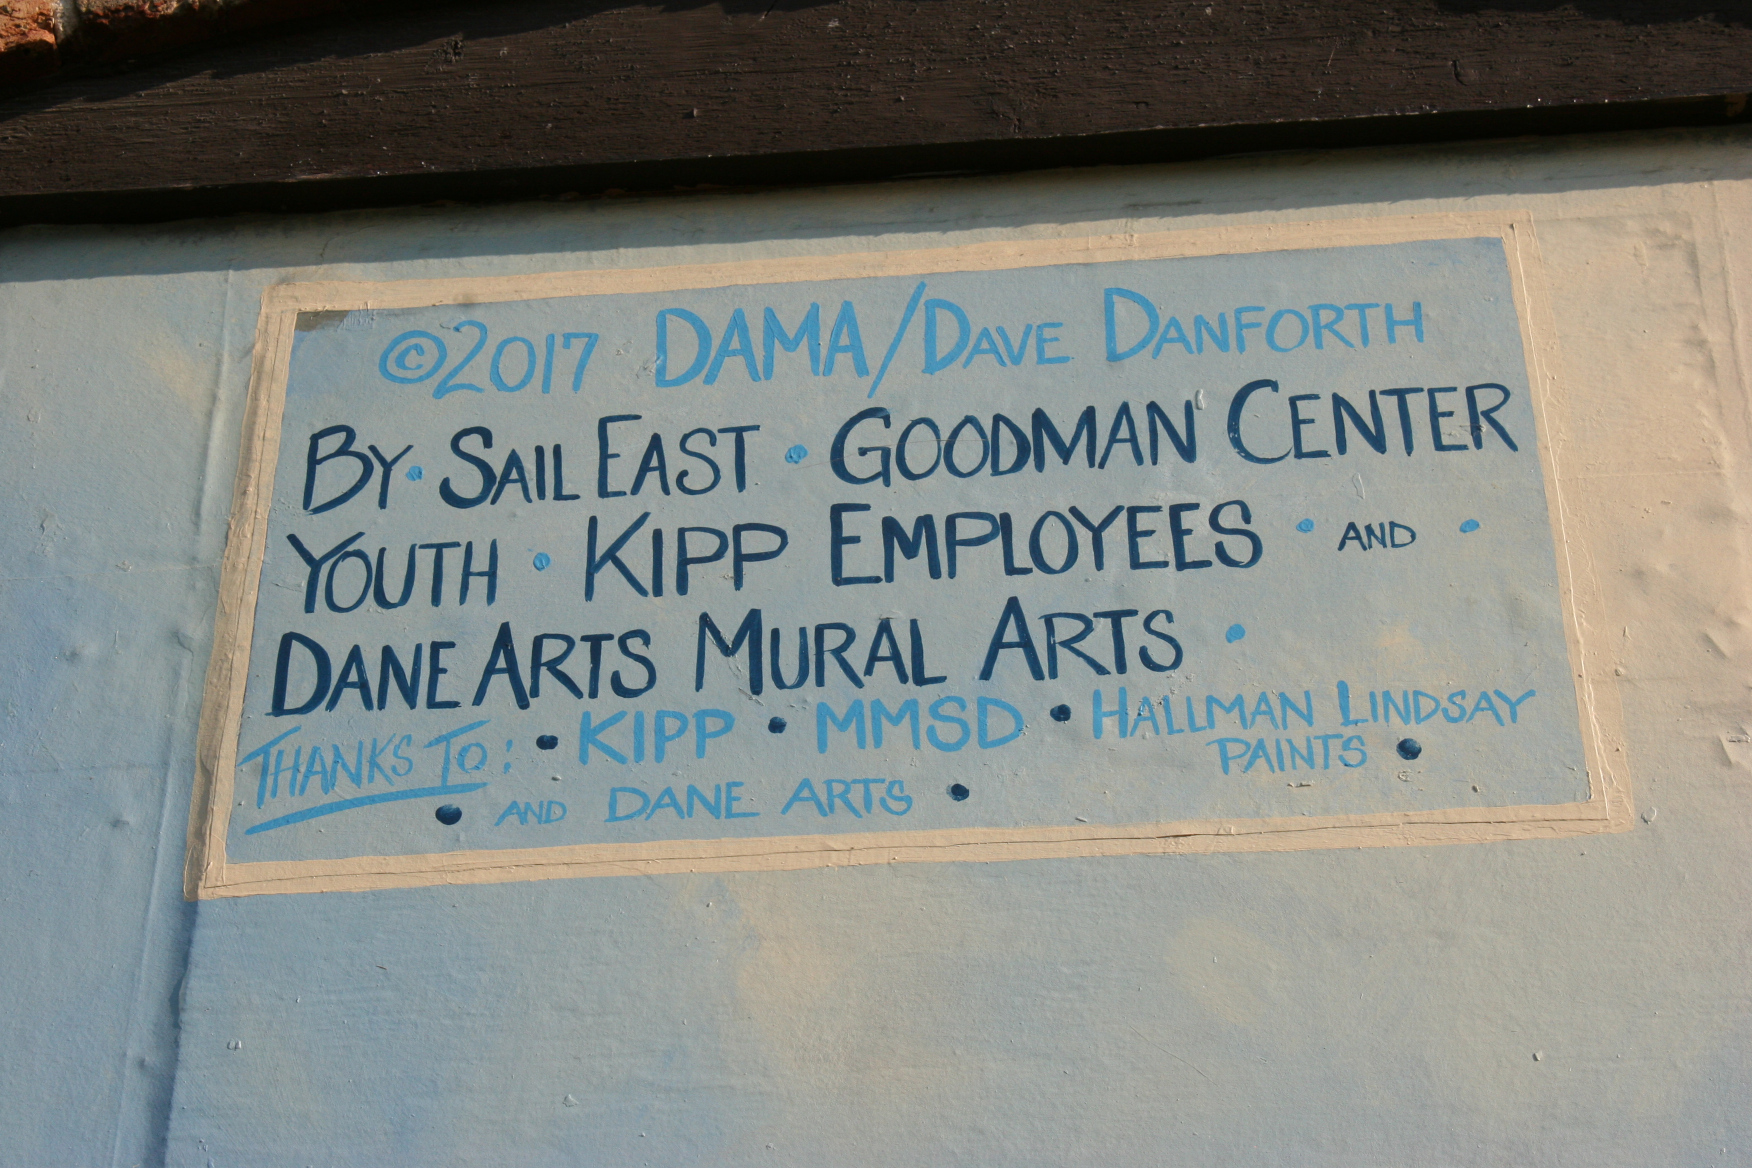 ©2017 DAMA/DAVE DANFORTH
BY • SAIL EAST • GOODMAN CENTER
YOUTH • KIPP EMPLOYEES • AND •
DANE ARTS MURAL ARTS •
THANKS TO: • KIPP • MMSD • HALLMAN LINDSAY
PAINTS •
• AND DANE ARTS •